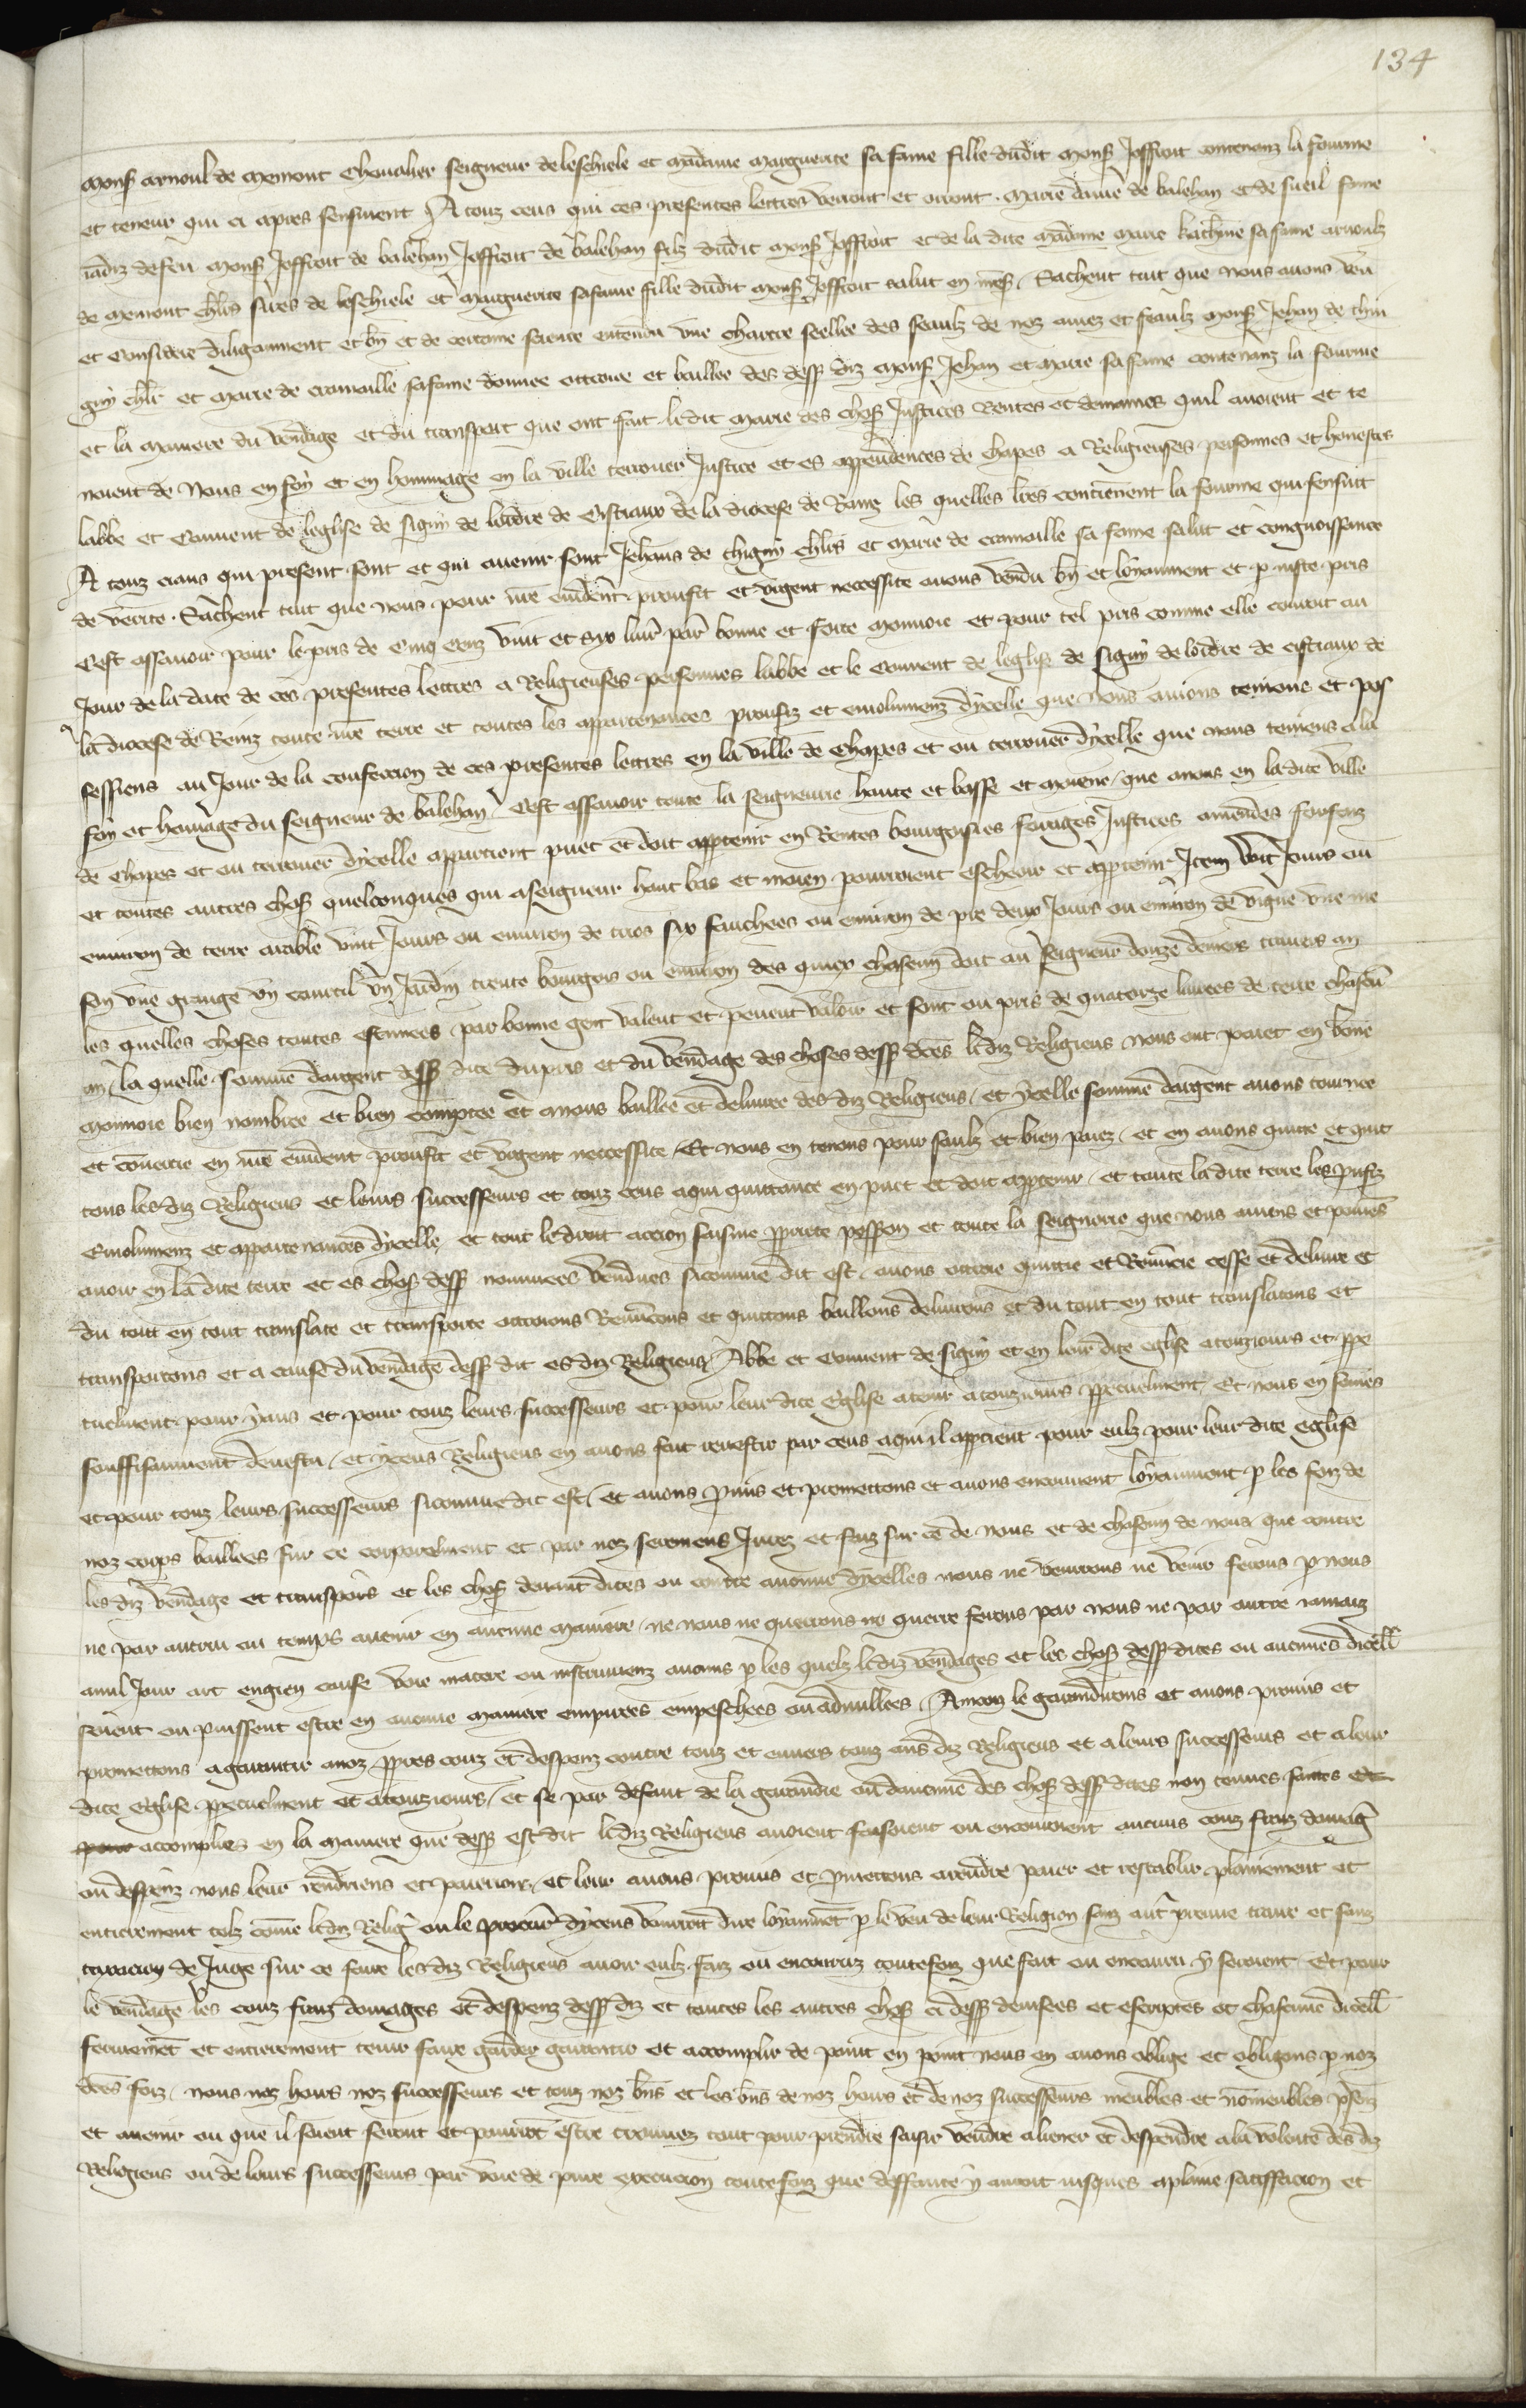 134
Mons Arnoul de Memont Chevalier seigneur de leschiele et madame Marguerite sa fame fille dudit mons Joffroit contenanz la fourme
et teneur qui ci apres sensuient A touz ceus qui ces presentes lettres verront et orront . Marie dame de balehan et de sueil fame
iadiz de feu mons Joffroit de balehan Joffroit de balehan filz dudit mons Joffroit et de la dite madame Marie kath̄ine sa fame arnoulz
de Memont chlrs sires de leschiele et Marguerite sa fame fille dudit mons Joffroit salut en nr̄e s̄. Sachent tuit que nous avons veu
et considere diligaument et bn̄ et de certaine science entendu une chartre seellee des seaulz de noz amez et feaulz mons Jehan de thin
guy chlr et Marie de cramaille sa fame donnee ottroie et baillee des dess diz mons Jehan et Marie sa fame contenanz la fourme
et la maniere du vendage et du transport que ont fait ledit Marie des chos Justices Rentes et demaines quil avoient et te
noient de Nous en foy et en hommage en la ville terrouer Justice et es appendences de chapes a Religieuses personnes et honestes
labbe et Couvent de leglise de signy de lordre de Cistiaux de la diocese de Rains les quelles lr̄es contienent la fourme qui sensuit
A touz ciaus qui present sont et qui avenir sont Jehans de thigny chlrs et Marie de cramaille sa fame salut et congnoissance
de verite . Sachent tuit que nous pour nr̄e evident proufit et urgent necessite avons vendu bn̄ et loyaument et p iuste pris
Cest assavoir pour le pris de Cinq cenz vint et syx livr̄ par̄ bonne et forte monnoie et pour tel pris comme elle couroit au
Jour de la date de ces presentes lettres a Religieuses personnes labbe et le Couvent de leglise de signy de lordre de cistiaux de
la diocese de Reinz toute nr̄e terre et toutes les appartenances proufiz et emolumenz dycelle que nous aviens teniens et pos
sessiens au Jour de la confeccion de ces presentes lettres en la ville de Chapes et ou terrouer dycelle que nous teniens a la
foy et homage du seigneur de balehan Cest assavoir toute la seigneurie haute et basse et moiene que avons en ladite ville
de chapes et ou terrouer dycelle appartient puet et doit appartenir en Rentes bourgoisies fouages Justices amendes forfaiz
et toutes autres chos quelconques qui a seigneur haut bas et moien pourroient escheoir et appartenir Item Vint Jours ou
environ de terre arable Vint Jours ou environ de trios six fauchees ou environ de pre deux Jours ou environ de vigne une me
son une grange un courtil un Jardin trente bourgois ou environ des quiex chascun doit au seigneur douze deniers touriers an
les quelles choses toutes estimees par bonne gent valent et pevent valoir et sont ou pris de quatorze livrees de terre chascū
an . la quelle somme dargent dess dite du pris et du vendage des choses dess dc̄es ledit Religieus nous ont paiet en bone
monnoie bien nombree et bien comptee et a nous baillee et delivree des diz Religieus / et ycelle somme dargent avons tournee
et convertie en nr̄e evident proufit et urgent neccessite / Et nous en tenons pour saulz et bien paiez / et en avons quitte et quit
tons lesdiz Religieus et leurs successeurs et touz ceus a qui quittance en puet et doit appartenir / et toute la dite terre les p̄ufiz
Emolumenz et appartenances dycelle et tout le droit accion saisine p̄priete poss̄ion et toute la seignorie que nous aviens et poiens
avoir en la dite terre et es chos dess nommees vendues sicomme dit est . avons ottroie quittie et Renuncie cesse et delivre et
du tout en tout translate et transporte ottroions Renuncons et quittons baillons delivrons et du tout en tout translatons et
transportons et a cause du vendage dess dit es diz Religieus Abbe et Couvent de signy et en leur dite eglise a touziours et p̄pe
tuelment pour yaus et pour touz leurs successeurs et pour leur dite Eglise a tenir a touziours p̄petuelment / Et nous en sommes
souffisaument devestu / et yceus Religieus en avons fait revestir par ceus a qui il appartient pour eulz pour leur dite eglise
et pour touz leurs successeurs sicomme dit est . et avons p̄mis et promettons et avons encouvent loyaument p les foiz de
noz corps baillees sur ce corporelment et par noz seremens Jurez et faiz sur ce de nous et de chascun de nous que contre
les diz vendage et transpors et les chos devant dites ou contre aucune dycelles nous ne venrons ne venir ferons p nous
ne par autrui ou temps avenir en aucune maniere / ne nous ne querrons ne querre ferons par nous ne par autre iamaiz
a nul Jour art engien cause voie matere ou instrumenz aucuns p les quelz lediz vendages et les chos dess dites ou aucunes dicell̄
seient ou puissent estre en aucune maniere empirees empeschees ou adnullees . Aincois le garandirons et avons promis et
promettons a garantir a noz p̄pres couz et despenz contre touz et envers touz aus diz Religieus et a leurs successeurs et a leur
dite Eglise p̄petuelment et a touziours / et se par defaut de la garandie ou daucune des chos dess dites non tenues faites et
accomplies en la maniere que dess est dit lediz Religieus avoient faisoient ou encouroient aucuns couz fraiz domaḡ
ou despenz nous leur rendriens et paierions / et leur avons promis et p̄mettons a rendre paier et restablir plainement et
entierement telz come lediz Reliḡ ou le procur̄ dyceus vourroit dire loyaumēt p le veu de leur Religion sanz autr̄ preuve traire et sanz
taxacion de Juge sur ce faire lesdiz Religieus avoir eulz faiz ou encouruz toutefoiz que fait ou encouru y seroient . Et pour
le vendage les couz fraiz domages et despenz dess diz et toutes les autres chos ci dess devisees et escriptes et chascune dicell̄
fermemēt et entierement tenir faire garder garantir et accomplir de point en point nous en avons oblige et obligons p noz
dc̄es foiz . nous noz hoirs noz successeurs et touz noz bn̄s et les bn̄s de noz hoirs et de noz successeurs meubles et nōmeubles p̄senz
et avenir ou que il soient seront et pourrōt estre trouvez tout pour prendre saisir vendre aliener et despendre a la volente des diz
Religieus ou de leurs successeurs par voie de pure execucion toutefoiz que deffaute y auroit iusques a plaine satisfacion et